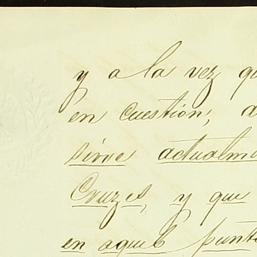 y a la vez qu
en cuestión, d
sirve actualme
Cruzes, y que
en aquel punto